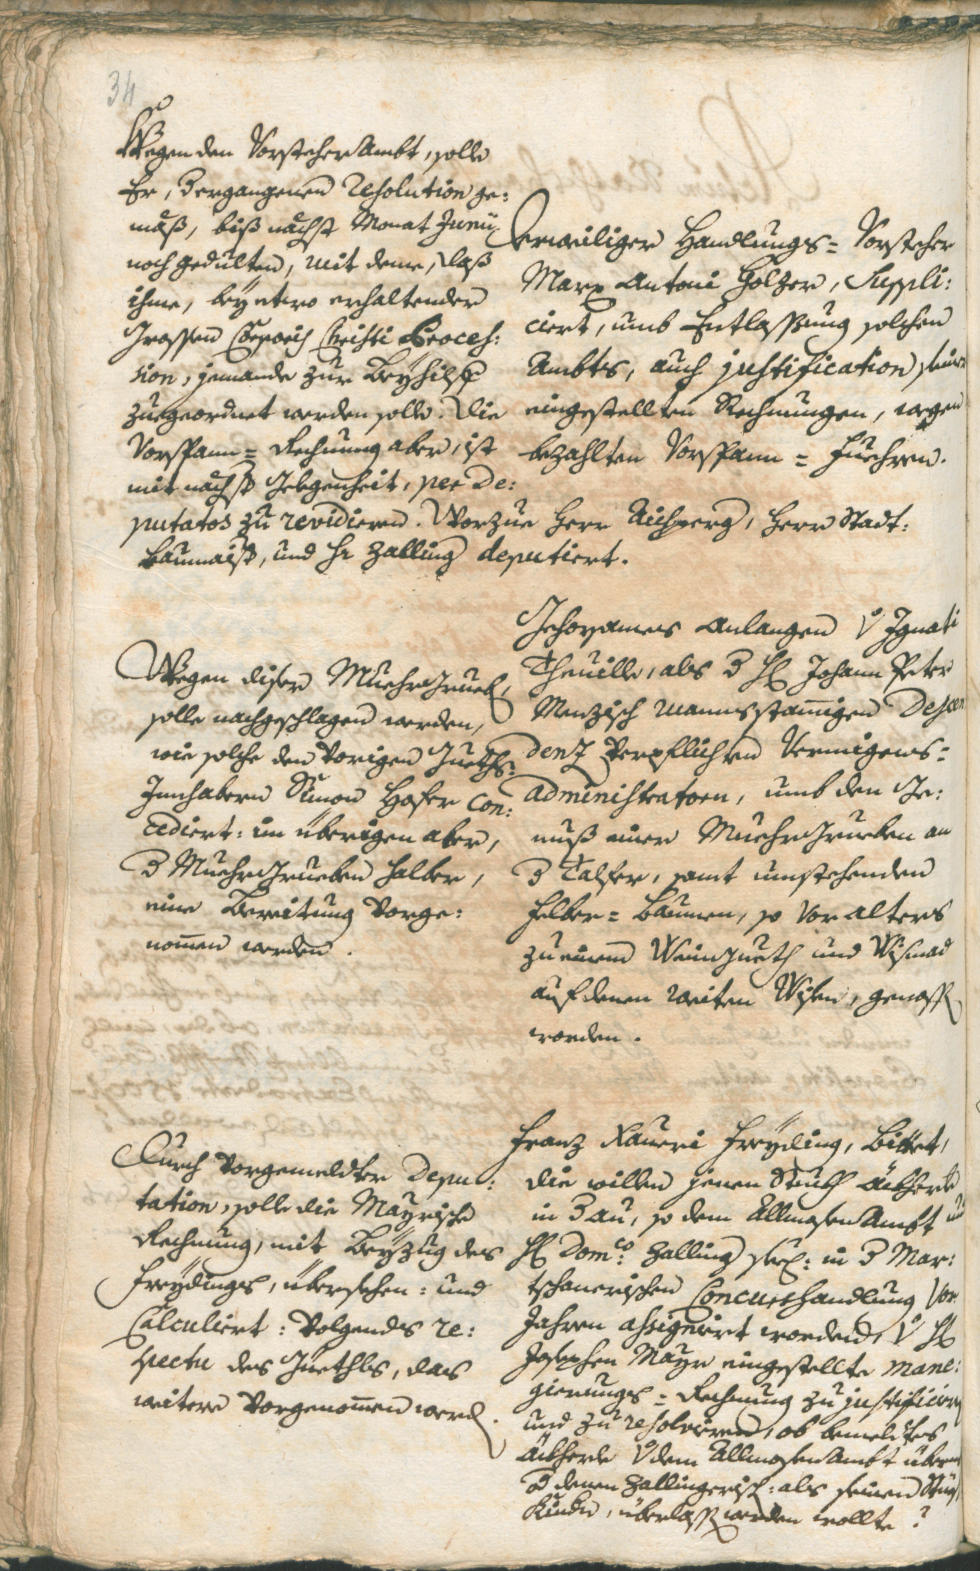 34
Wegen den Vorsteher Ambt, solle
Er, Vergangenen Resolution ge:
mäß, biß nächst Monat Junii
noch gedulten, mit deme, daß
ihme, bey etwo erhaltender
Grossen Corporis Christi Proceß:
sion, jemande zur Beyhilff
zuegeordnet werden solle. Die
Vorspann= Rechnung aber, ist
mit nächst Gelegenheit, per De:
putatos zu revidieren. Worzue Herr Aichperg, Herr Stadt:
baumaistr, und Hr Zalling deputiert.
Derweiliger Handlungs= Vorsteher
Marx Antoni Holzer, Suppli:
ciert, umb Entlassung solchen
Ambts, auch justification, seiner
eingestellten Rechnungen, wegen
bezahlten Vorspann= Fuehren.
Wegen diser Muehr Grueb,
solle nachgeschlagen werden,
wie solche den Vorigen Gueths:
Innhabern Simon Hofer con:
cediert: im überigen aber,
Muehr Grueben halber,
eine Bereitung Vorge:
nommen werden.
Gehorsames Anlangen Ignati
Theuille, als Johann Peter
Menzisch mannsstamigen Descen
denz Verpflichten Vermögens=
Administratorn, umb den Ge:
nuß einer Muehr Grueben an
Talfer, samt umstehenden
Felber= Baumen, so Vor alters
zu einem Weingueth und Wismad
auf denen weiten Wisen, genossen
worden.
Durch Vorgemeldte Depu:
tation, solle die Mayrische
Rechnung, mit Beyzug des
Freydings, übersehen: und
Calculiert: Volgends re:
spectu des Guethls, das
weitere Vorgenommen werden.
Franz Xaveri Freyding, Bittet,
die willen jenen Stuckh Äckherle
in Bau, so dem Allmosen Ambt und
Domco: Zalling in Mar:
tschanerischen Concurshandlung Vor
Jahren assigniert worden,
Josephen Mayr eingestellte mane:
gierungs= Rechnung zu justificiern
und zu resolvieren, ob bemeldtes
Äckherle dem Allmosen Ambt über
denen Zallingerisch: als seinen Stieff
Kindern, überlassen werden wollte?